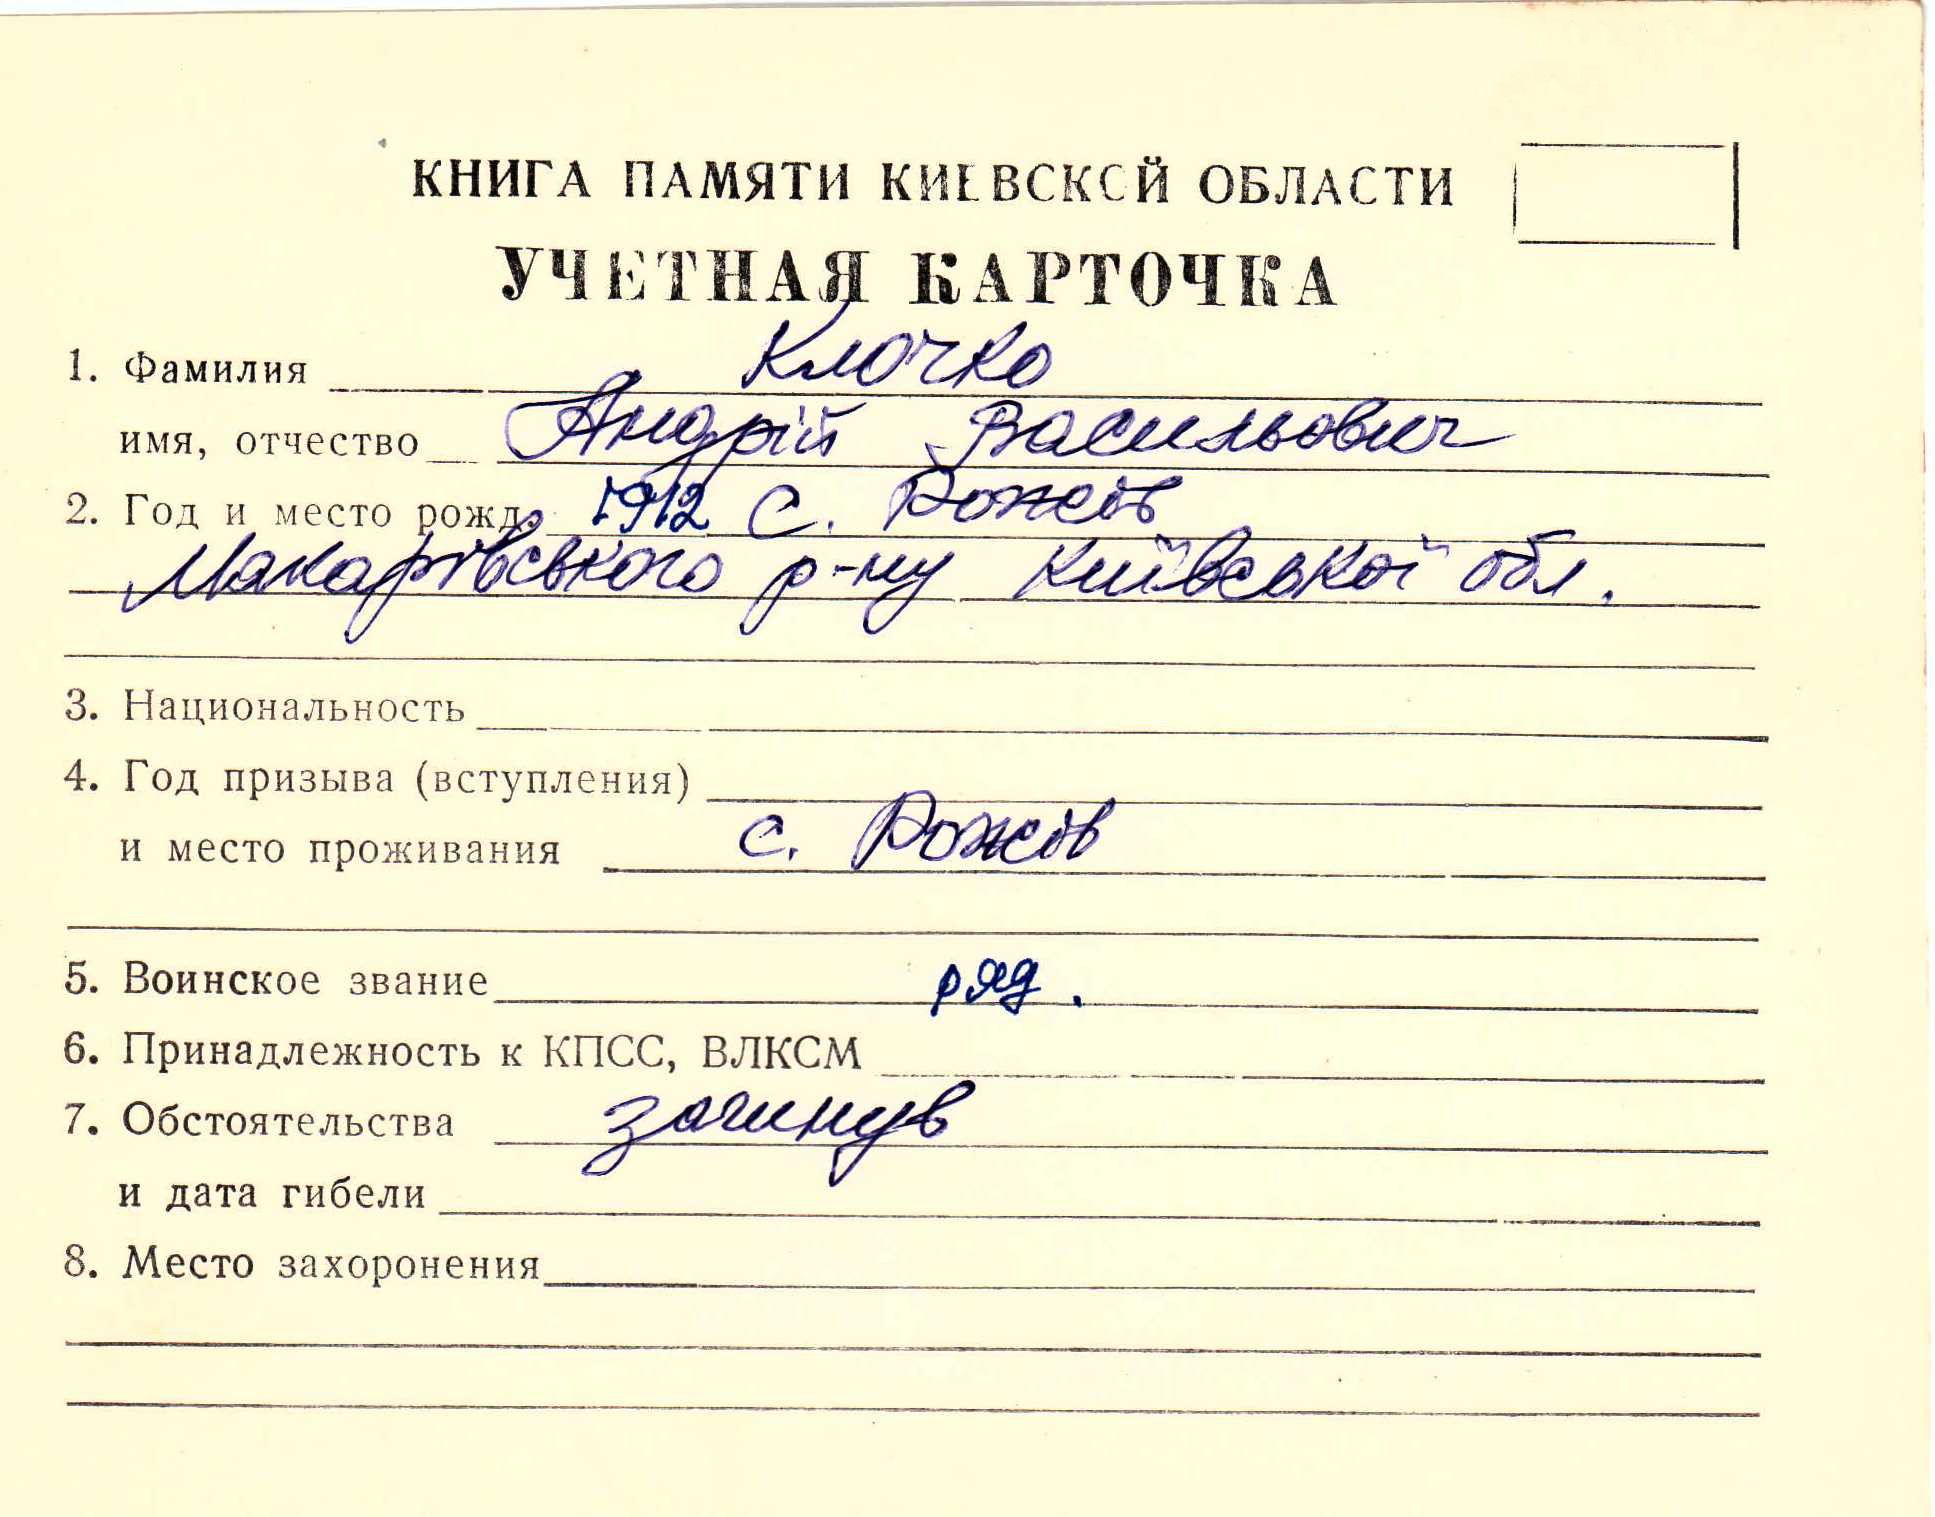 КНИГА ПАМЯТИ КИЕВСКОЙ ОБЛАСТИ
УЧЕТНАЯ КАРТОЧКА
1. Фамилия Клочко
имя, отчество Андрій Васильович
2. Год и место рожд. 1912 с. Рожів
Макарівського р-ну Київської обл.
3. Национальность
4. Год призыва (вступления)
и место проживания с. Рожів
5. Воинское звание ряд.
6. Принадлежность к КПСС, ВЛКСМ
7. Обстоятельства загинув
и дата гибели
8. Место захоронения